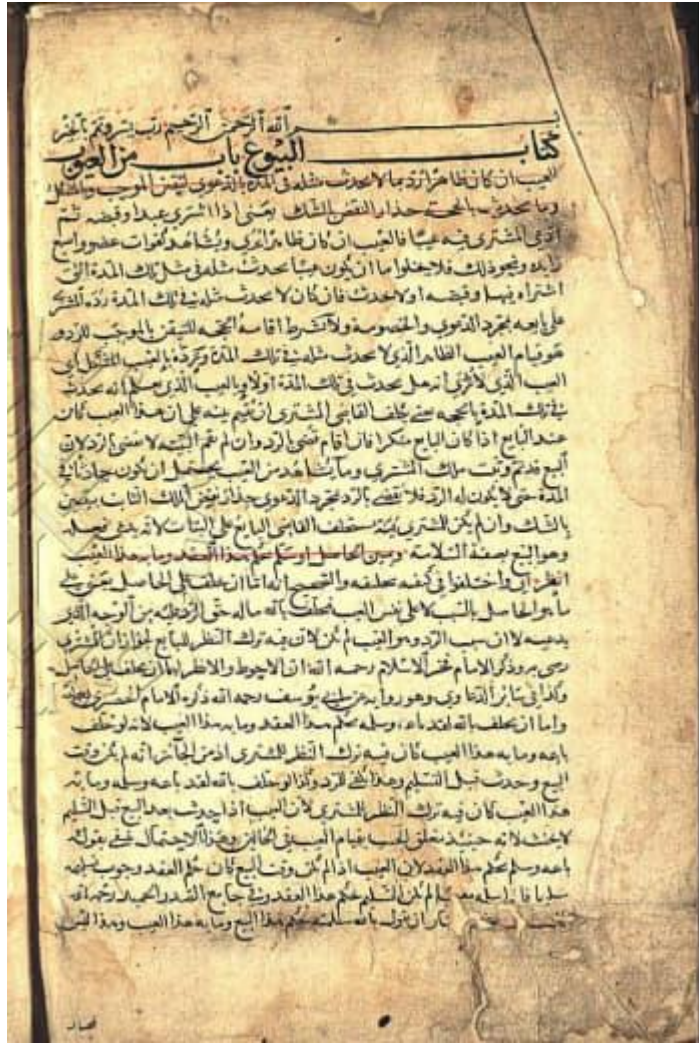 بسم الله الرحمن الرحيم رب يسر وتمم بالخير
كتاب البيوع باب من العيوب
العيب ان كان ظاهرا يرد بما لا يحدث مثله في المدة بالدعوى ليقن الموجب وبالمشكل
وما يحدث بالحجة حذار النقض بالشك يعني اذا اشترى عبدا وقبضه ثم
ادعى المشترى فيه عيبا فالعيب ان كان ظاهرا يرى ويشاهد كفوات عضو واصبع
زايدة ونحو ذلك فلا يخلوا ما ان يكون عيبا يحدث مثله في مثل تلك المدة التي
اشتراه فيها وقبضه اولا يحدث فان كان لا يحدث مثله في تلك المدة رده المشترى
على بايعه بمجرد الدعوى والخصومة ولا تشترط اقامة الحجة للتيقن بالموجب للرد و
هو قيام العيب الظاهر الذي لا يحدث مثله في تلك المدة وكرده بالعيب المشكل اي
العيب الذي لا يدرى انه هل يحدث في تلك المدة اولا وبالعيب الذي يعلم انه يحدث
في تلك المدة بالحجة حتى يكلف القاضي المشترى ان يقيم بينة على ان هذا العيب كان
عند البايع اذا كان البايع منكرا فان اقام قضى بالرد وان لم يقم البينة لا يقضى بالرد لان
البيع قد تم وقت ملك المشتري وما يشاهد من العيب يحتمل ان يكون حادثا في
المدة حتى لا يكون له الرد فلا يقضى بالرد بمجرد الدعوى حذار نقض الملك الثابت بيقين
بالشك وان لم يكن للمشترى بينة يستحلف القاضي البايع على البتات لانه يدعى فعله
وهو البيع بصفة السلامة ويمين الحاصل اوسلم بحكم هذا العقد وما به هذا العيب
انظر اي واختلفوا في كيفية تحليفه والصحيح انه اما ان يحلف على الحاصل يعنى على
ما هو الحاصل بالسبب لا على نفس العيب فيحلف بالله ماله حق الرد عليه من الوجه الذي
يدعيه لا ان سبب الرد وهو العيب لم يكن لان فيه ترك النظر للبايع لجواز ان المشترى
رضى به وذكر الامام فخر الاسلام رحمه الله ان الاحوط والانظر لهما ان يحلف على الحاصل
وكذا في سائر الدعاوى وهو رواية عن ابي يوسف رحمه الله ذكره الامام
واما ان يحلف بالله لقد باعه وسلمه بحكم هذا العقد وما به هذا العيب لانه لو حلف
باعه وما به هذا العيب كان فيه ترك النظر للمشترى اذ من الجائز انه لم يكن وقت
البيع وحدث قبل التسليم وهذا يكفى للرد وكذا لو حلف بالله لقد باعه وسلمه وما به
هذا العيب كان فيه ترك النظر للمشترى لان العيب اذا حدث بعد البيع قبل التسليم
لا يحنث لانه حينئذ يتعلق الحنث بقيام العيب في الحالين وهذا الاحتمال في بقوله
باعه وسلم بحكم هذا العقد لان العيب اذا لم يكن وقت البيع كان حكم العقد وجوب تسليمه
سليما فاذا سلمه معيبا لم يكن التسليم بحكم هذا العقد وفي جامع الصدر الحميد رحمه الله
ان يقول بالله سلمته بحكم هذا البيع وما به هذا العيب وهذا